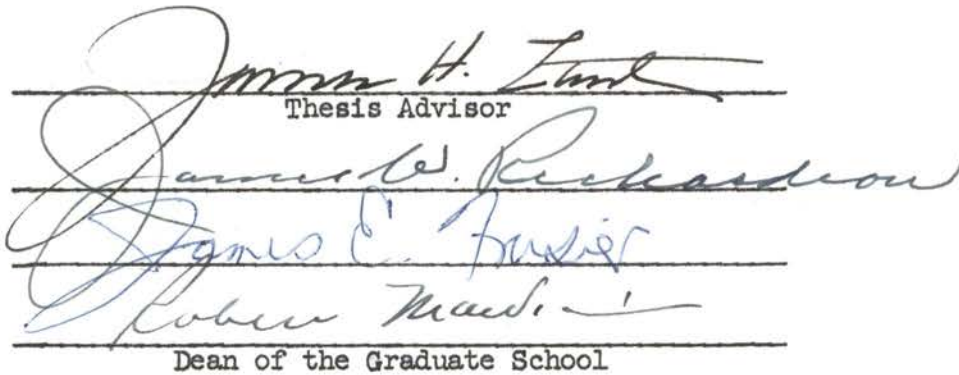 H.
Thesis Advisor
James W. Richardson
James E. Frasier
Robert
Dean of the Graduate School